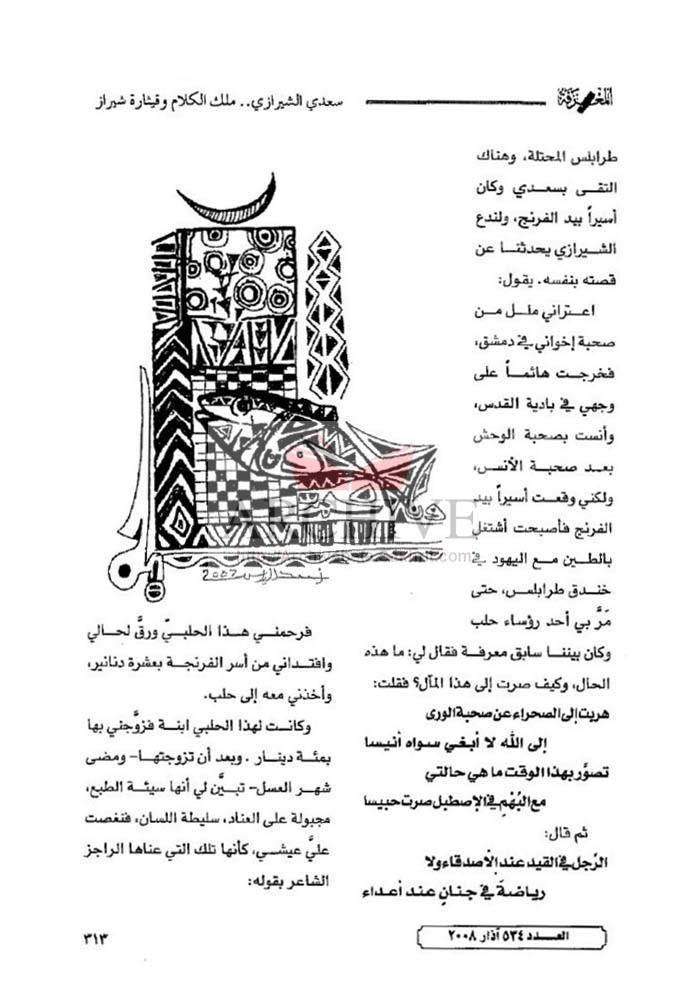 المعرفة
سعدي الشيرازي.. ملك الكلام وقيثارة شيراز
طرابلس المحتلة، وهناك
التقى بسعدي وكان
أسيراً بيد الفرنج، ولندع
الشيرازي يحدثنا عن
قصته بنفسه. يقول:
اعتراني ملل من
صحبة إخواني في دمشق،
فخرجت هائماً على
وجهي في بادية القدس،
وأنست بصحبة الوحش
بعد صحبة الأنس،
ولكني وقعت أسيراً بيد
الفرنج فأصبحت أشتغل
بالطين مع اليهود في
خندق طرابلس، حتى
مَرَّ بي أحد رؤساء حلب
وكان بيننا سابق معرفة فقال لي: ما هذه
الحال، وكيف صرت إلى هذا المآل؟ فقلت:
هربت إلى الصحراء عن صحبة الورى
إلى الله لا أبغي سواه أنيسا
تصوَّر بهذا الوقت ما هي حالتي
مع البُهْمِ في الإصطبل صرت حبيسا
ثم قال:
الرَّجل في القيد عند الأصدقاء ولا
رياضةَ في جنانٍ عند أعداء
فرحمني هذا الحلبيّ ورقَّ لحالي
وافتداني من أسر الفرنجة بعشرة دنانير،
وأخذني معه إلى حلب.
وكانت لهذا الحلبي ابنة فزوَّجني بها
بمئة دينار. وبعد أن تزوجتها- ومضى
شهر العسل- تبيَّن لي أنها سيئة الطبع،
مجبولة على العناد، سليطة اللسان، فنغصت
عليَّ عيشي، كأنها تلك التي عناها الراجز
الشاعر بقوله:
2007
ARCHIVE
العـدد ٥٣٤ آذار ٢٠٠٨
٣١٣